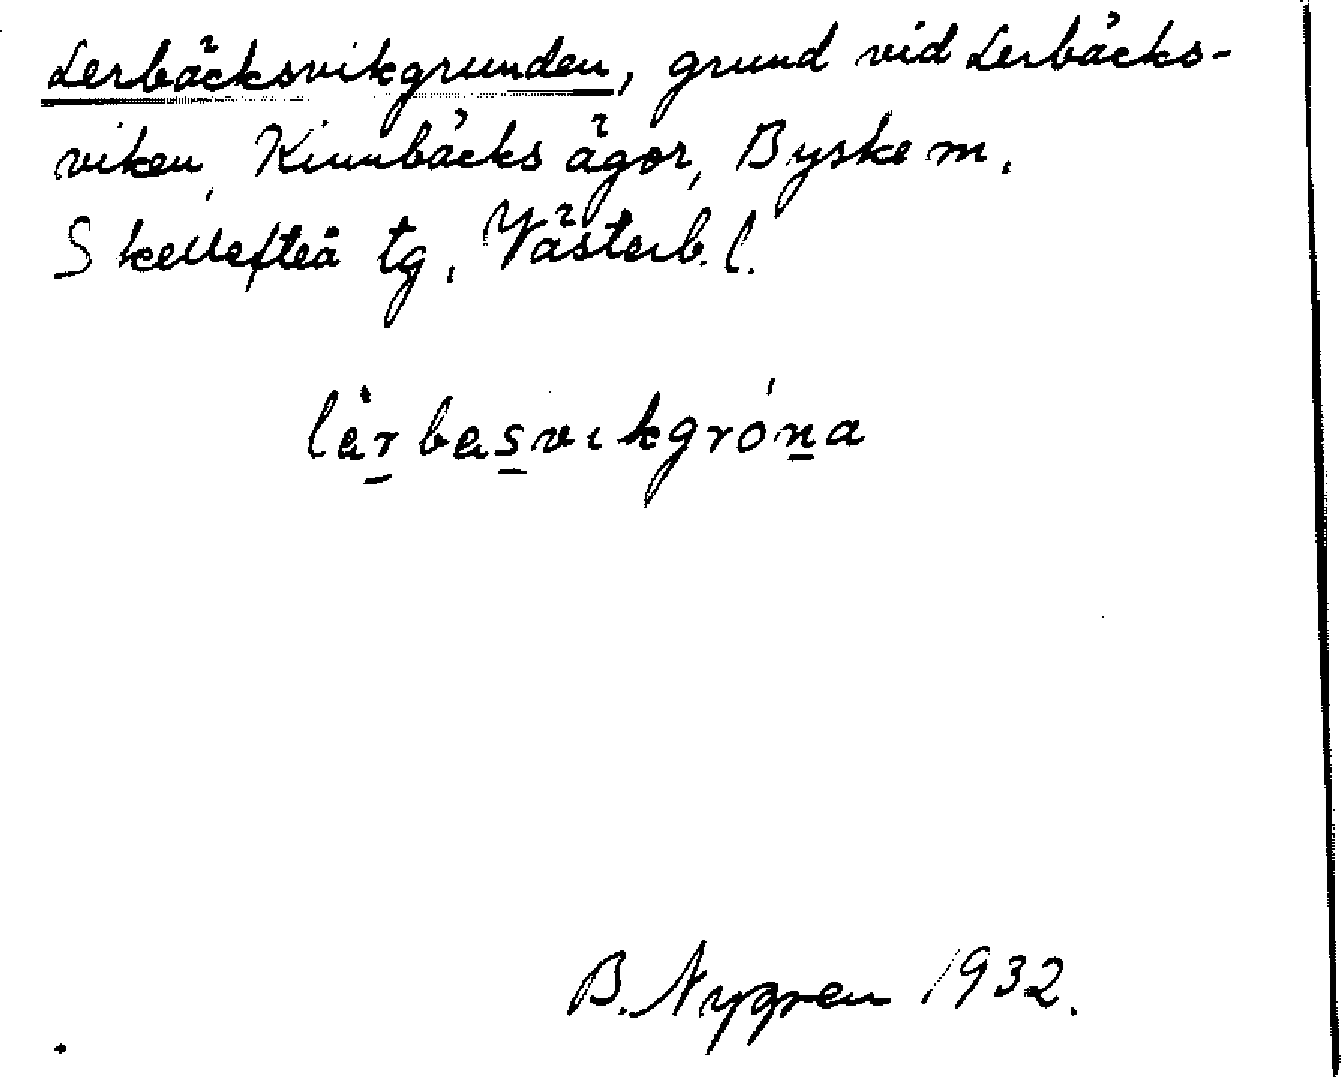 Lerbäcksvikgrunden, grund vid Lerbäcks-
viken, Kinnbäcks ägor, Byske m.
Skellefteå tg, Västerb. l.
lèr̲bas̲vikgrón̲a
B. Nygren 1932.